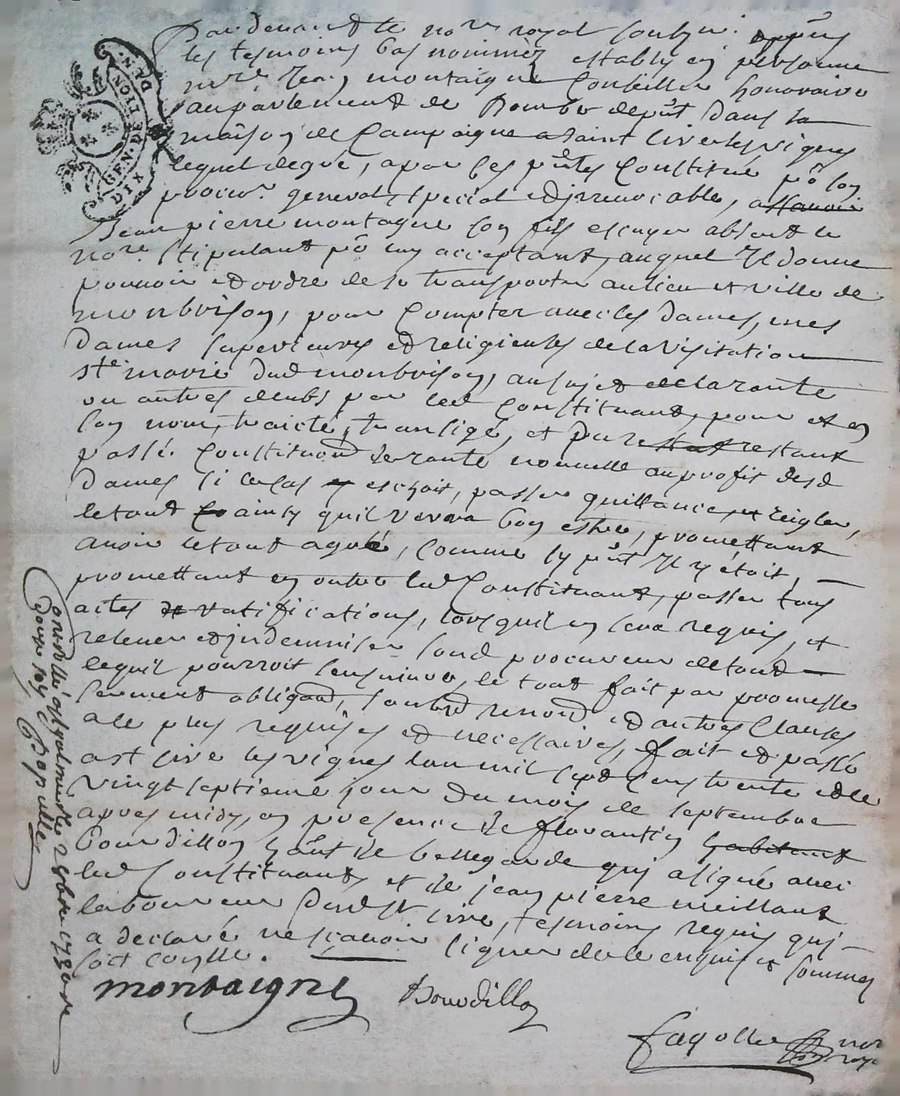 GEN. DE LYON
DIX DEN.
Pardevant le no.re royal soubz.né
les tesmoins bas nommez estably en personne
m.re Jean montaigne Conseiller honoraire
au parlement de Dombe dans sa
maison de Campaigne a saint Cire les vignes
lequel de gré, a par ces p.ntes Constitué p.r son
procur.r general special et irrevocable, a scavoir
Jean pierre montagne son fils escuyer absent le
no.re stipulant p.r luy acceptant, auquel Il donne
pouvoir et ordre de se transporter au lieu et ville de
monbrison, pour Compter avec les Dames, mes
Dames superieures et religieuses de la visitation
s.te marie dud monbrison, au sujet de la rante
ou autres deubs par led Constituant, pour et en
son nom, traicté, transigé, et pur restant
passé Constitu de rante nouvelle au profit desd
Dames si le cas y eschoit, passer quittances et reigler,
le tout ainsy quil verra bon estre, promettant
avoir le tout agreé, Comme sy p.nt Il y étoit,
promettant en outre led Constituant, passer tous
actes de ratifications, lorsquil en sera requis, et
relever et indemniser sond procureur de tout
le quil pourroit sensuivre, le tout fait par promesse
serment obligaõn, soubmõn renonõn et autres Clauses
a le plus requises et necessaires, fait et passé
a st Cire les vignes lan mil sept Cens trente et le
vingt septieme jour du mois de septembre
apres midy, en presence de florantin habitant
Bourdillon de bellegarde qui a signé avec
led Constituant et de jean pierre meillant
laboureur dud st Cire, tesmoins requis qui
a declaré ne scavoir signer de le enquis et sommez
montaigne
Bourdillon
fayolle no.re
royal